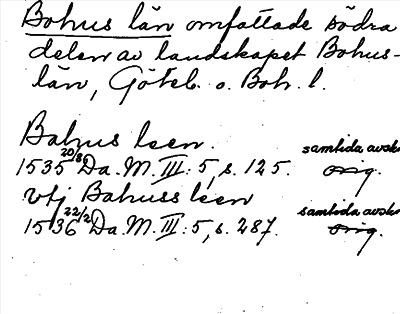 Bohus län omfattade södra
delen av landskapet Bohus-
län, Göteb. o. Boh. l.
Bahus leen.
1535 20/8 Da. M. III: 5, s. 125. samtida avskr. orig.
vtj Bahuss leen
1536 22/2 Da. M. III: 5, s. 287. samtida avskr. orig.